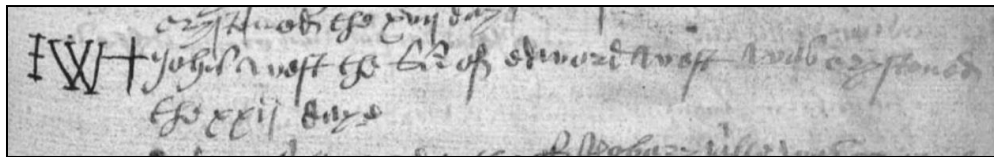 crystned the xvij day
IWH John west the So of edward west was crystened
the xxij daye